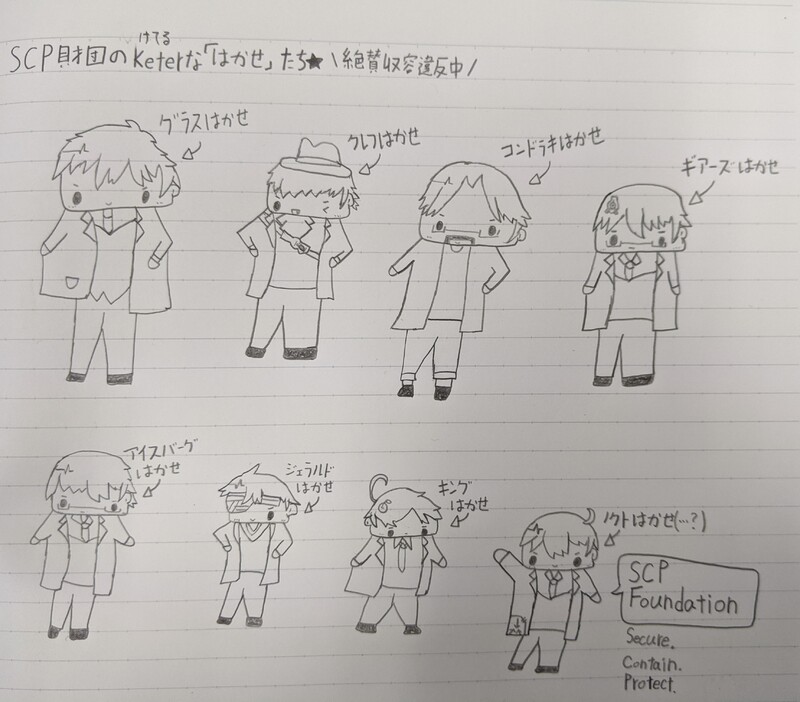 SCP財団のKeterな「はかせ」たち★ \絶賛収容違反中/
けてる
グラスはかせ
クレフはかせ
コンドラキはかせ
ギアーズはかせ
アイスバーグ
はかせ
ジェラルド
はかせ
キング
はかせ
ノクトはかせ(…?)
SCP
Foundation
Secure.
Contain.
Protect.